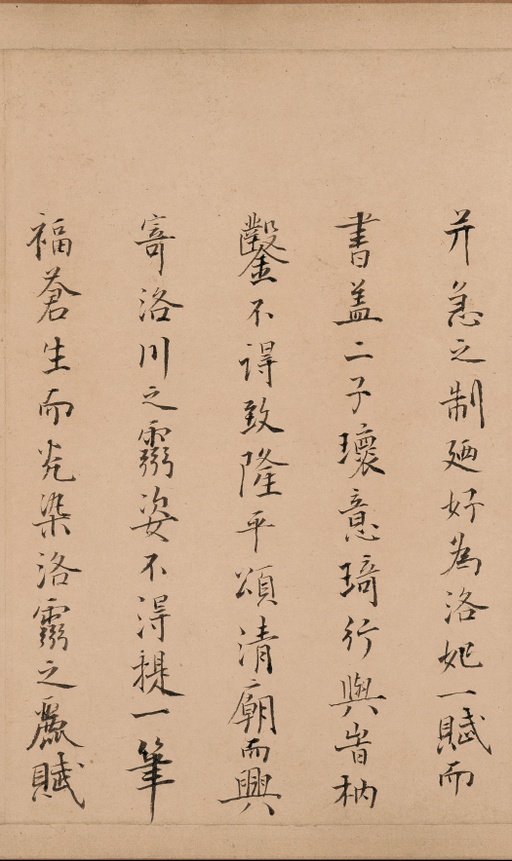 并急之制迺好為洛妃一賦而
書盖二子瓌意琦行與旹枘
鑿不得致隆平頌清廟而興
寄洛川之霛姿不得提一筆
福蒼生而光染洛霛之麗賦